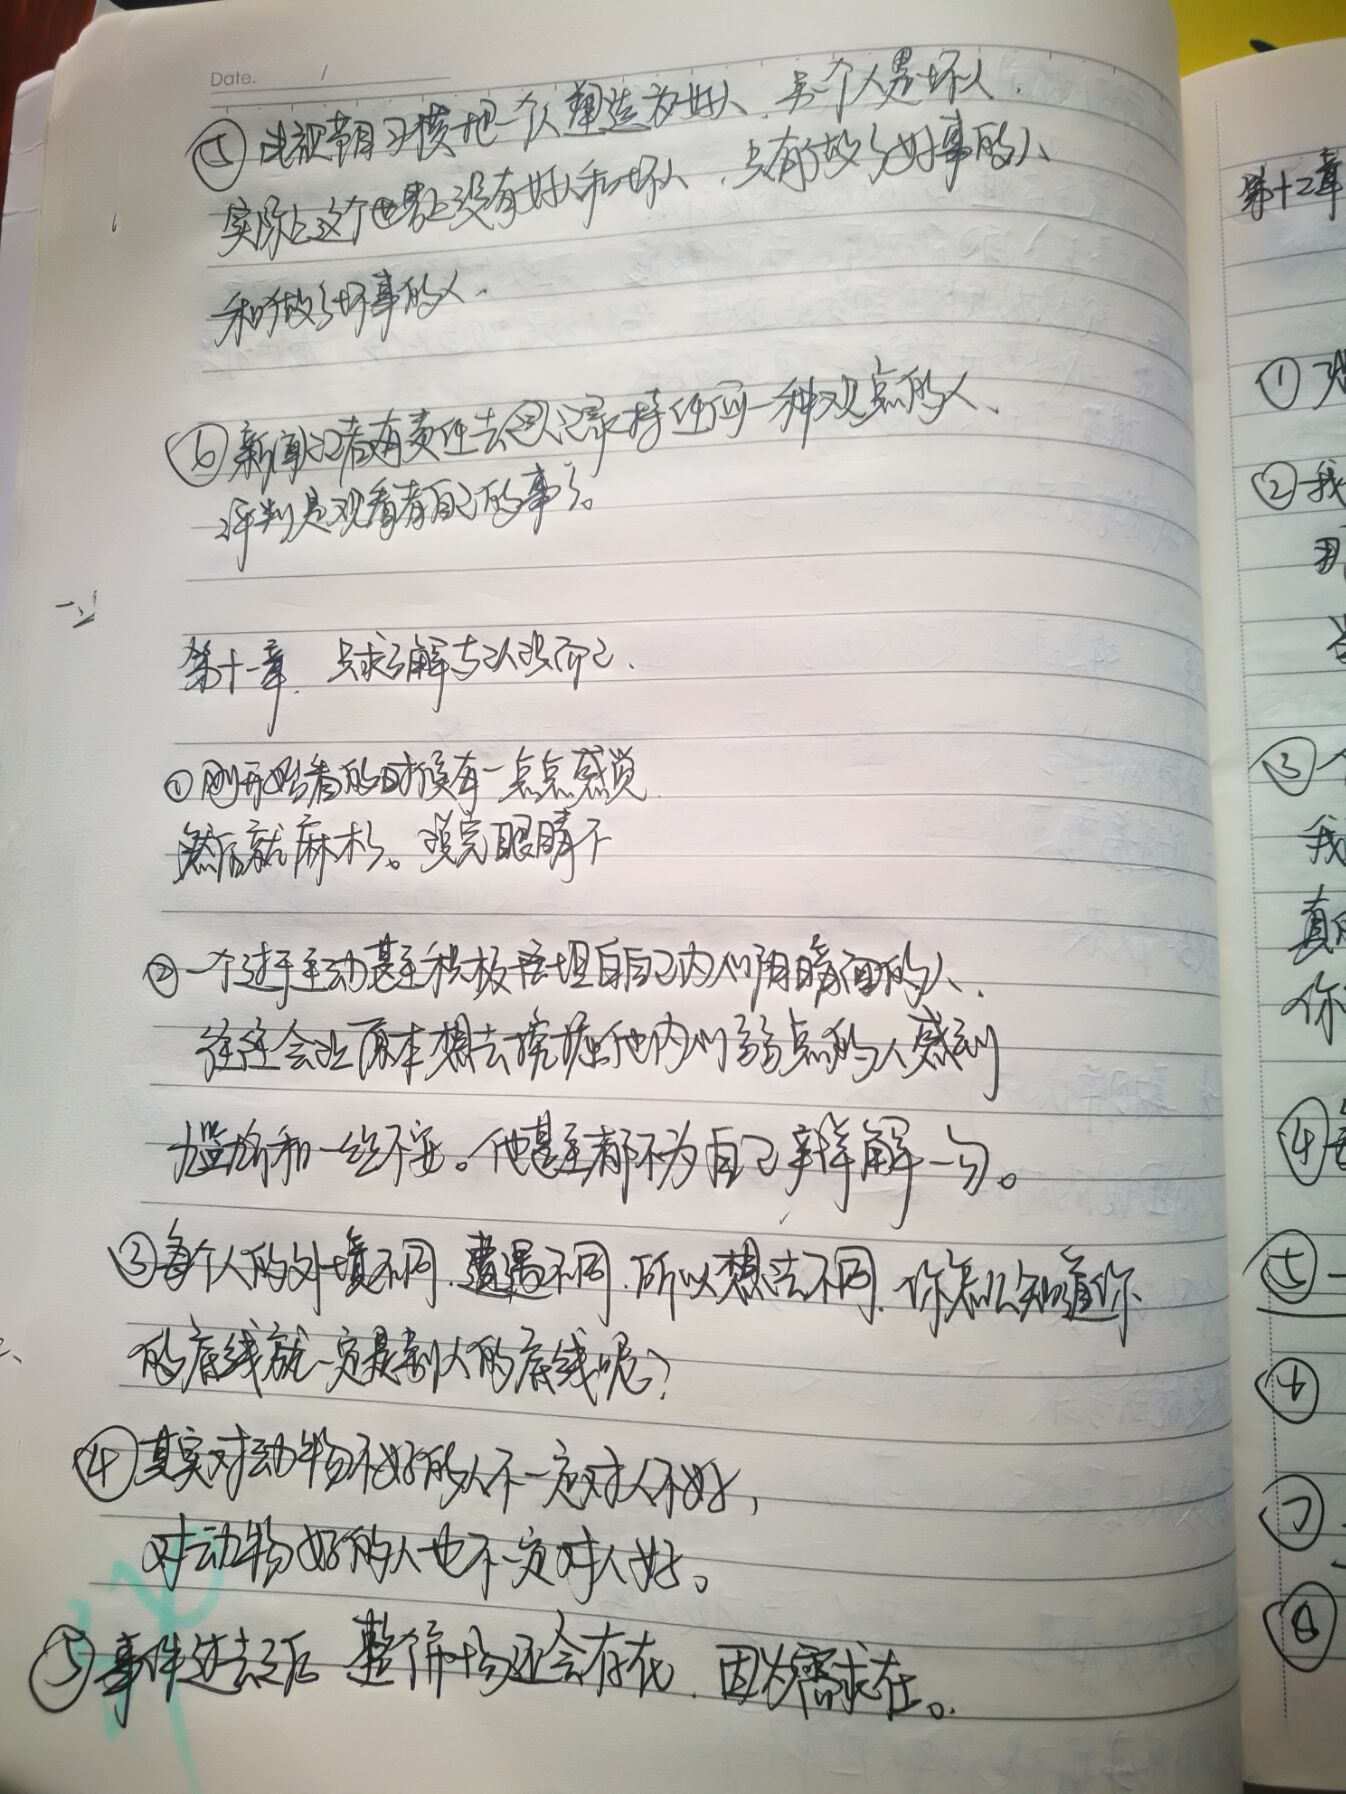 Date.
⑤ 电视节目习惯把一个人塑造为好人、另一个人是坏人.
实际上这个世界上没有好人和坏人、只有做了好事的人
和做了坏事的人.
⑥ 新闻记者有责任去记录持任何一种观点的人、
评判是观看者自己的事了。
第十一章. 只求了解与认识而已.
① 刚开始看的时候有一点点感觉
然后就麻木。 眼睛不
② 一个过于主动甚至积极坦白自己内心阴暗面的人、
往往会让原本想去挖掘他内心弱点的人感到
尴尬和一丝不安。他甚至都不为自己辩解一句。
③ 每个人的外境不同、遭遇不同、所以想法不同、你怎么知道你
的底线就一定是别人的底线呢?
④ 其实对动物不好的人不一定对人不好,
对动物好的人也不一定对人好。
⑤ 事件过去之后 整个市场还会存在、因为需求在。
第十二章
①
② 我
③
我
你
④
⑤
⑥
⑦
⑧